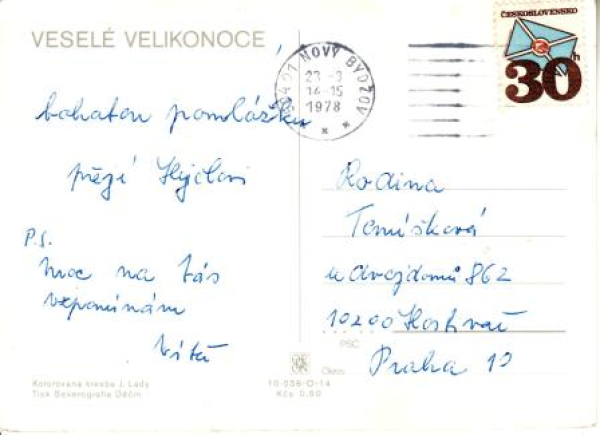 VESELÉ VELIKONOCE
bohatou pomlázku
přejí
P.S.
moc na Vás
vzpomínám
Víťa
504 01 NOVÝ BYDŽOV
23 -3
14-15
1978
ČESKOSLOVENSKO
30h
Rodina
Temíšková
u dvojdomů 862
10200 Hostivař
PSČ
Praha 10
Okres
Kolorovaná kresba J. Lady
Tisk Severografia Děčín
10-058-O-14
Kčs 0,80